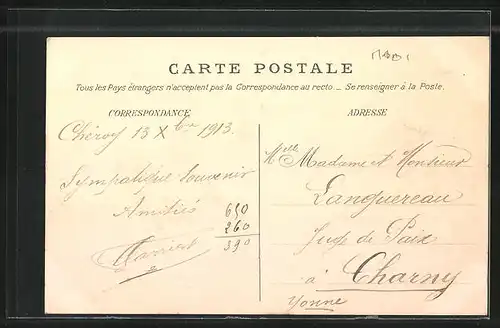 CARTE POSTALE
Tous les Pays étrangers n'acceptent pas la Correspondance au recto. _ Se renseigner à la Poste.
CORRESPONDANCE
Chéroy 13 Xbre 1913.
Sympatique Souvenir
Amitiés
650
260
390
ADRESSE
Melle Madame et Monsieur
Languereau
Juge de Paix
à Charny
Yonne